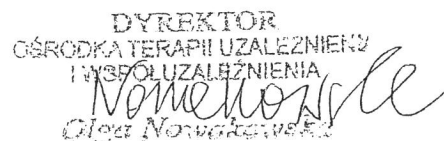 DYREKTOR
OŚRODKA TERAPII UZALEŻNIENIA
I WSPÓŁUZALEŻNIENIA
Nowakowska
Olga Nowakowska